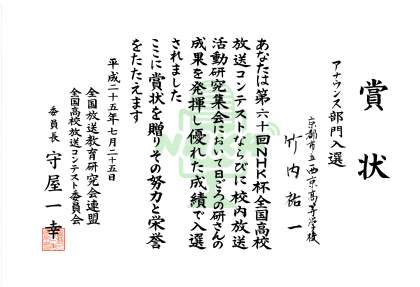 賞状
アナウンス部門入選
京都市立西京高等学校
竹内祐一
あなたは第六十回NHK杯全国高校
放送コンテストならびに校内放送
活動研究集会において日ごろの研さんの
成果を発揮し優れた成績で入選
されました
ここに賞状を贈りその努力と栄誉
をたたえます
平成二十五年七月二十五日
全国放送教育研究会連盟
全国高校放送コンテスト委員会
委員長 守屋一幸